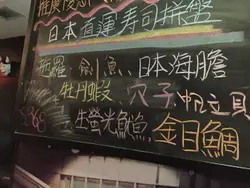 推廣
日本直運壽司拼盤
劍魚、日本海膽
牡丹蝦、穴子、帆立貝
生螢光魷魚、金目鯛